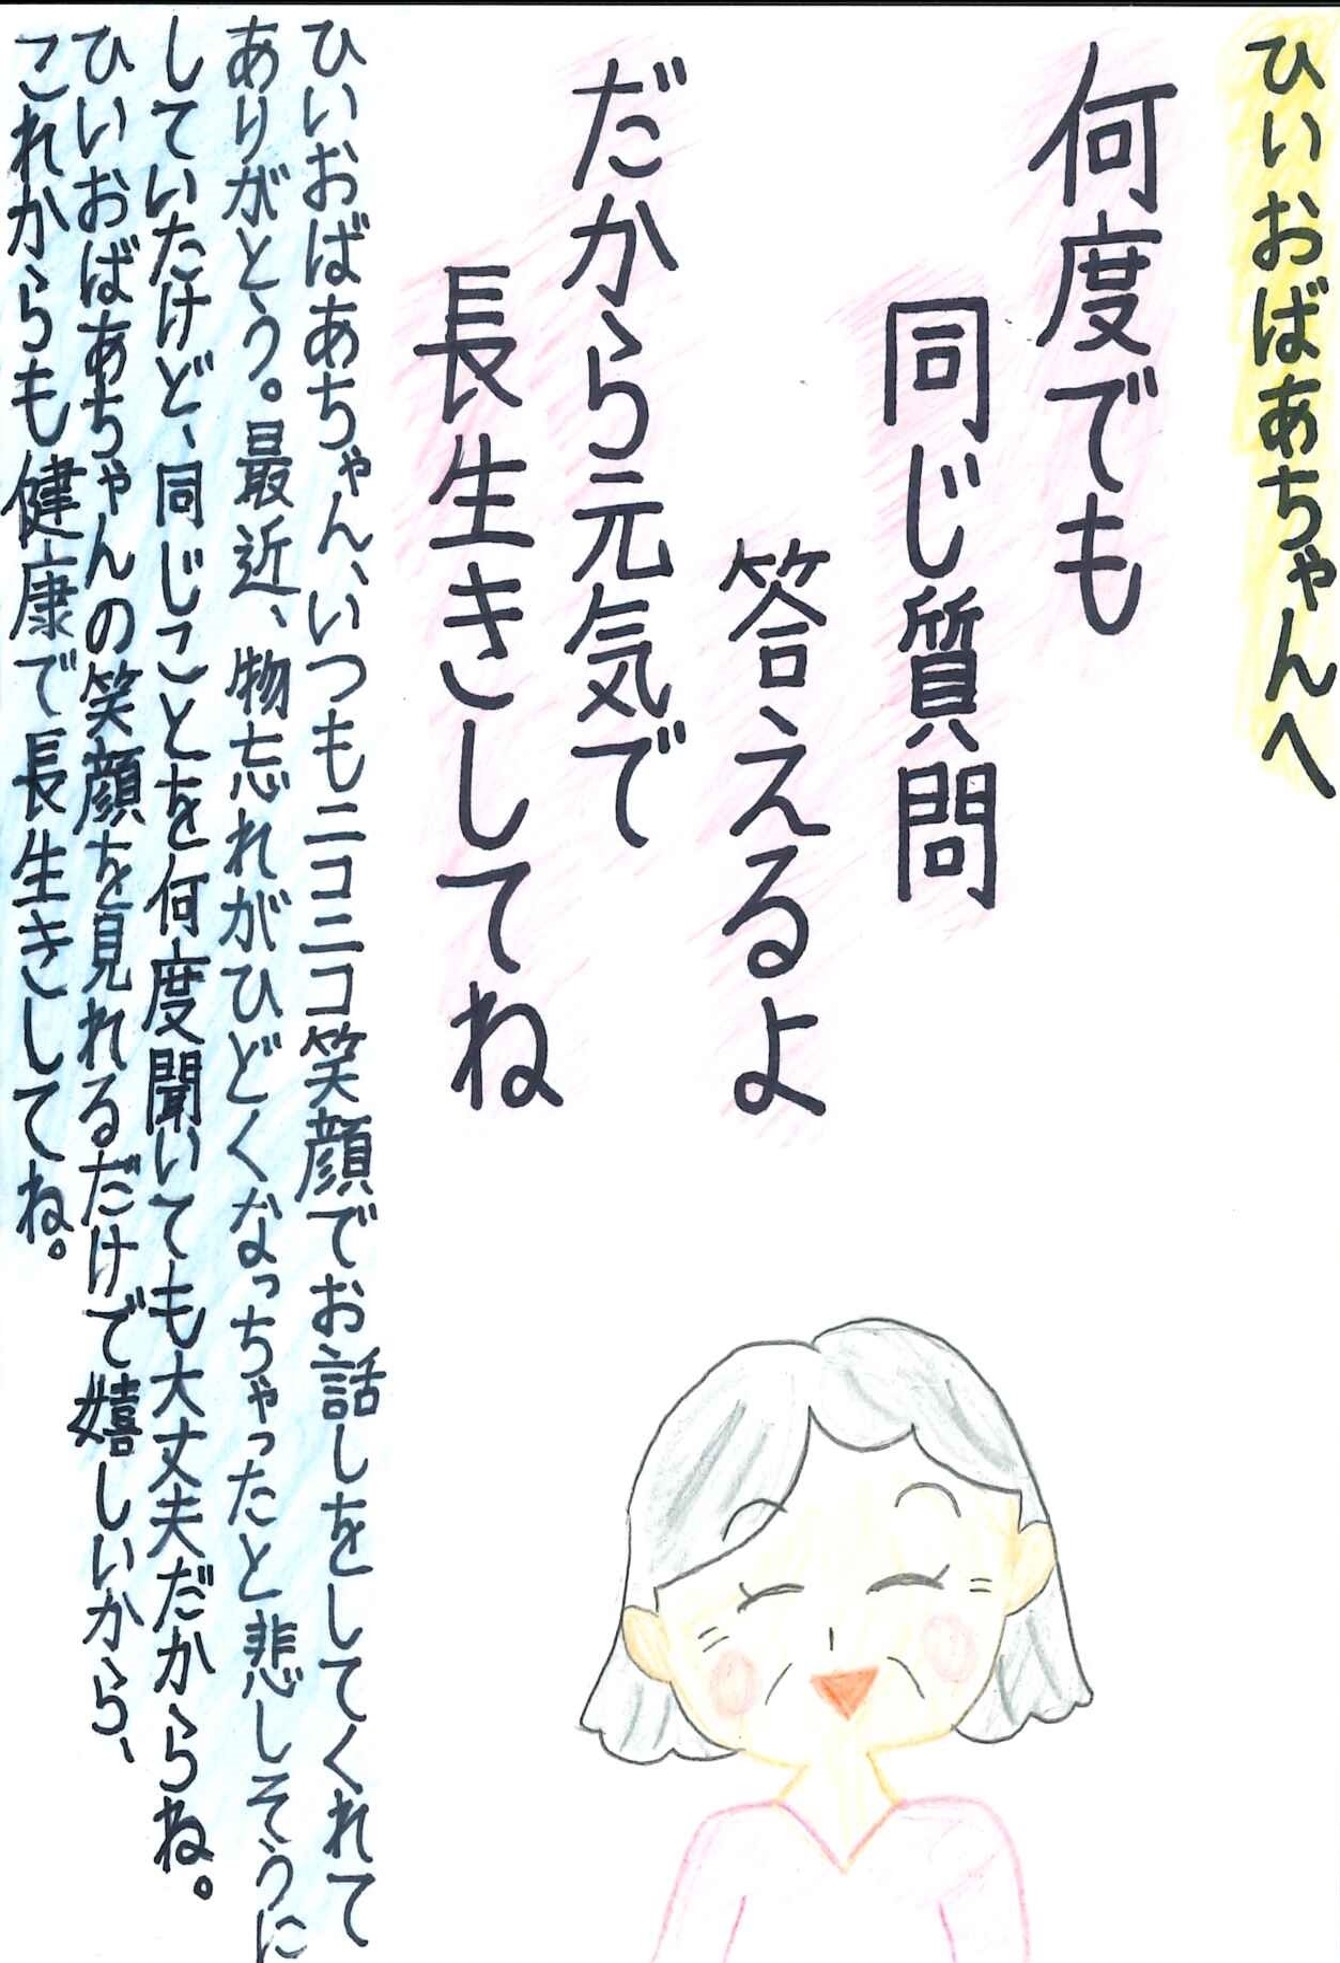 ひいおばあちゃんへ
何度でも
同じ質問
答えるよ
だから元気で
長生きしてね
ひいおばあちゃん、いつもニコニコ笑顔でお話しをしてくれて
ありがとう。最近、物忘れがひどくなっちゃったと悲しそうに
していたけど、同じことを何度聞いても大丈夫だからね。
ひいおばあちゃんの笑顔を見れるだけで嬉しいから、
これからも健康で長生きしてね。